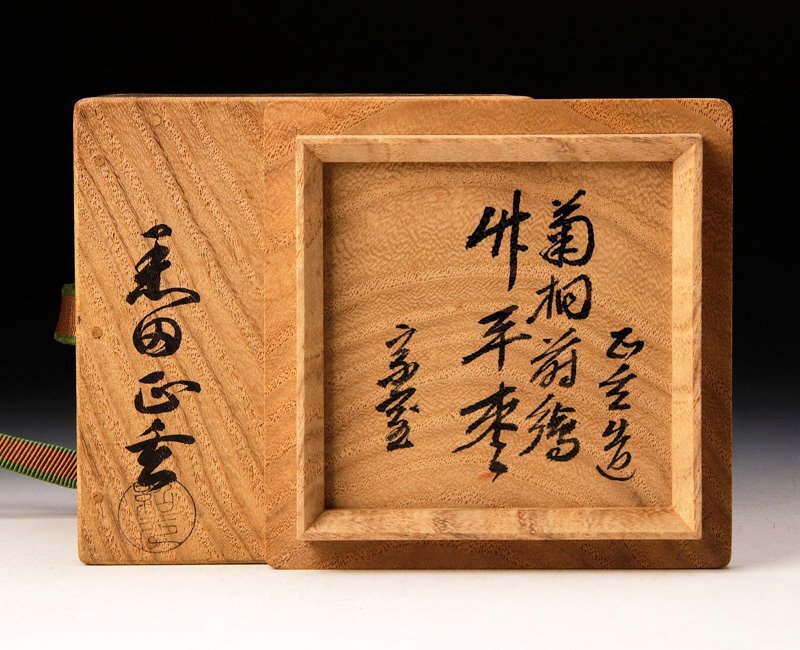 正玄造
菊桐蒔繪
竹平棗
黒田正玄